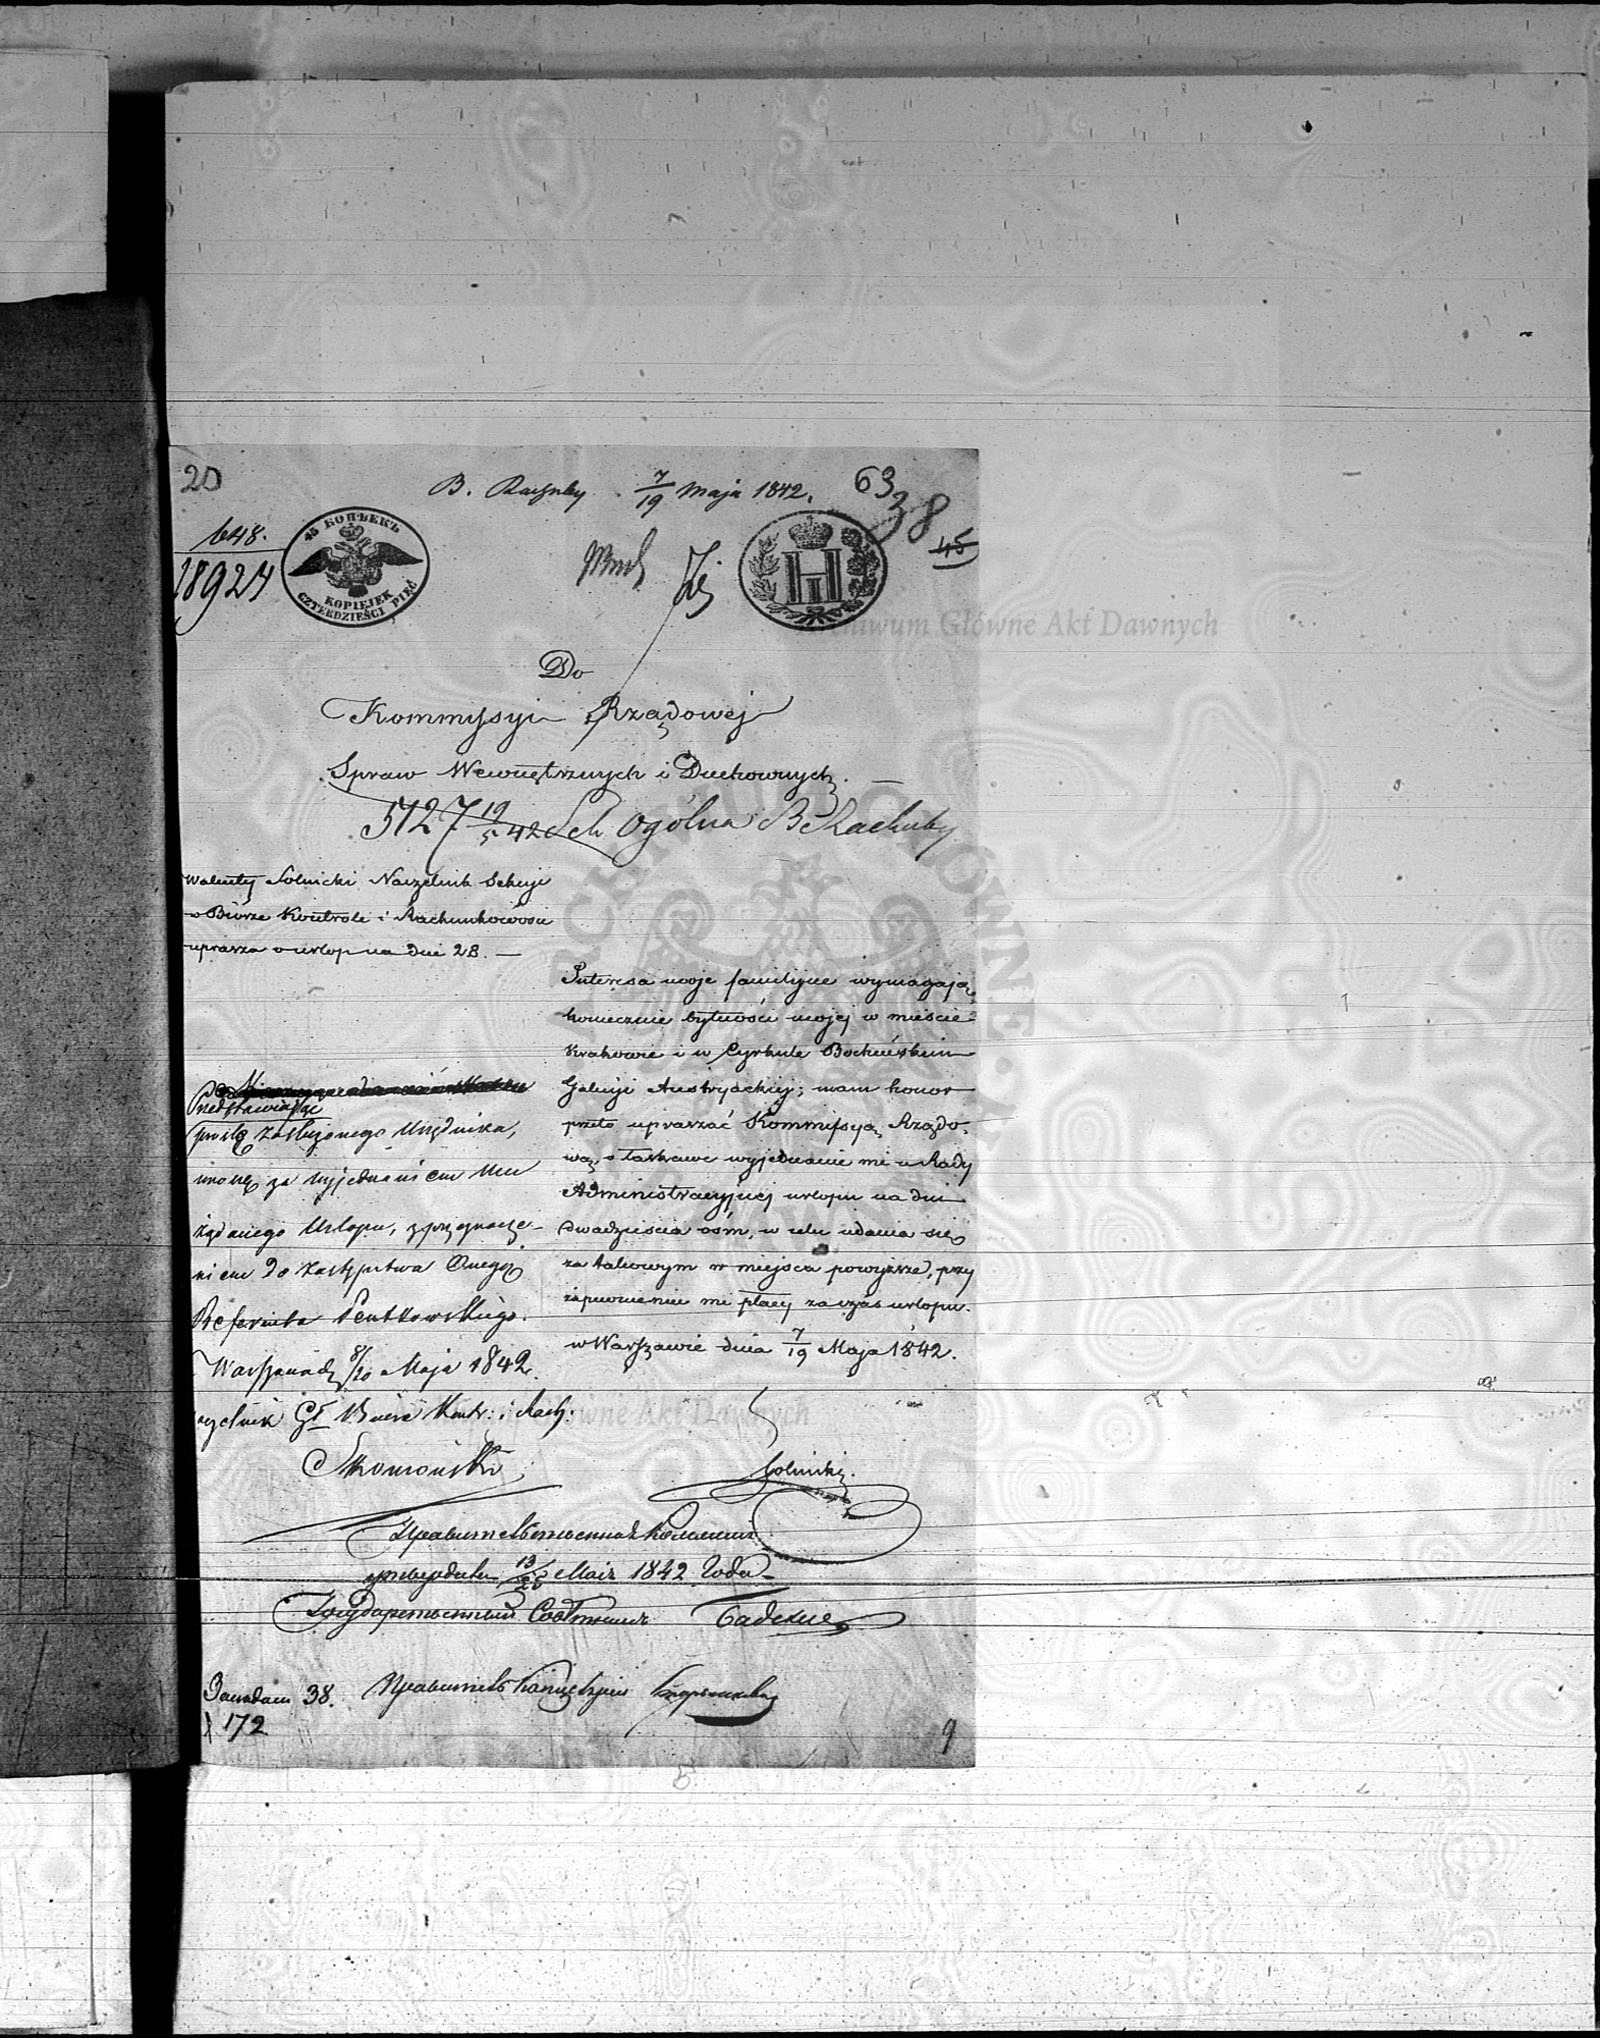 20
B. Rachuby 7/19 Maja 1842.
63
38
45
648.
18924
45 КОПѢЕКЪ
KOPIEJEK
CZTERDZIEŚCI PIĘĆ
Н I
Archiwum Główne Akt Dawnych
Do
Kommissyi Rządowej
Spraw Wewnętrznych i Duchownych.
5127 19/5 42 Sek Ogólna B Rachuby
Walenty Solnicki Naczelnik Sekcyi
w Biórze Kontroli i Rachunkowości
uprasza o urlop na dni 28. —
Interesa moje familijne wymagają
koniecznie bytności mojej w mieście
Krakowie i w Cyrkule Bocheńskim
Galicyi Austryackiej; mam honor
przeto upraszać Kommissyą Rządo-
wą, o łaskawe wyjednanie mi u Rady
Administracyjnej urlopu na dni
dwadzieścia ośm, w celu udania się
za takowym w miejsca powyższe, przy
zapewnieniu mi płacy za czas urlopu.
w Warszawie dnia 7/19 Maja 1842.
Solnicki.
Przedstawiając
prośbę zasłużonego Urzędnika,
wnoszę za wyjednaniem Mu
żądanego Urlopu, z przeznacze-
niem do zastępstwa Onego
Referenta Pentkowskiego.
Warszawa d. 8/20 Maja 1842.
Naczelnik Gł. Biura Kontr: i Rach:
Główne Akt Dawnych
Правительственная Коммисія
утвердила 13/25 Мая 1842 Года
Государственный Совѣтникъ
38.
172
9